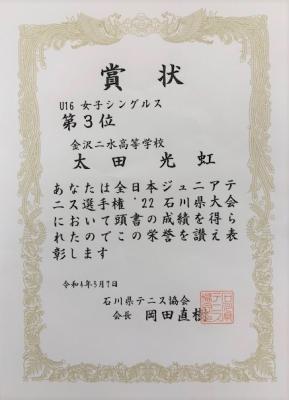 賞状
U16 女子シングルス
第3位
金沢二水高等学校
太田光虹
あなたは全日本ジュニアテ
ニス選手権'22石川県大会
において頭書の成績を得ら
れたのでこの栄誉を讃え表
彰します
令和4年5月7日
石川県テニス協会
会長 岡田直樹